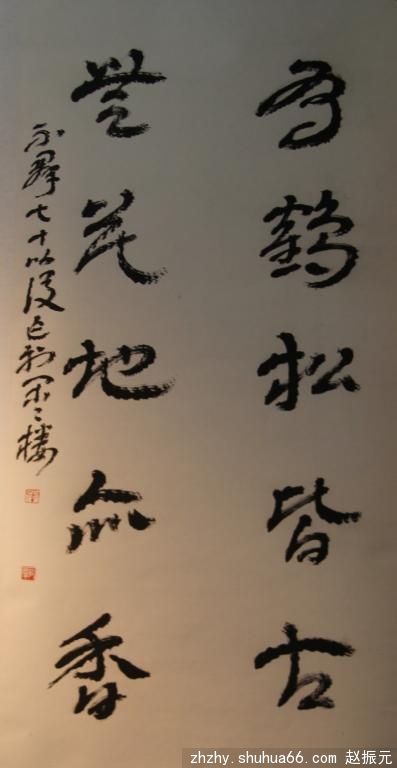 有鶴松皆古
無花地亦香
七十以後
zhzhy.shuhua66.com 赵振元